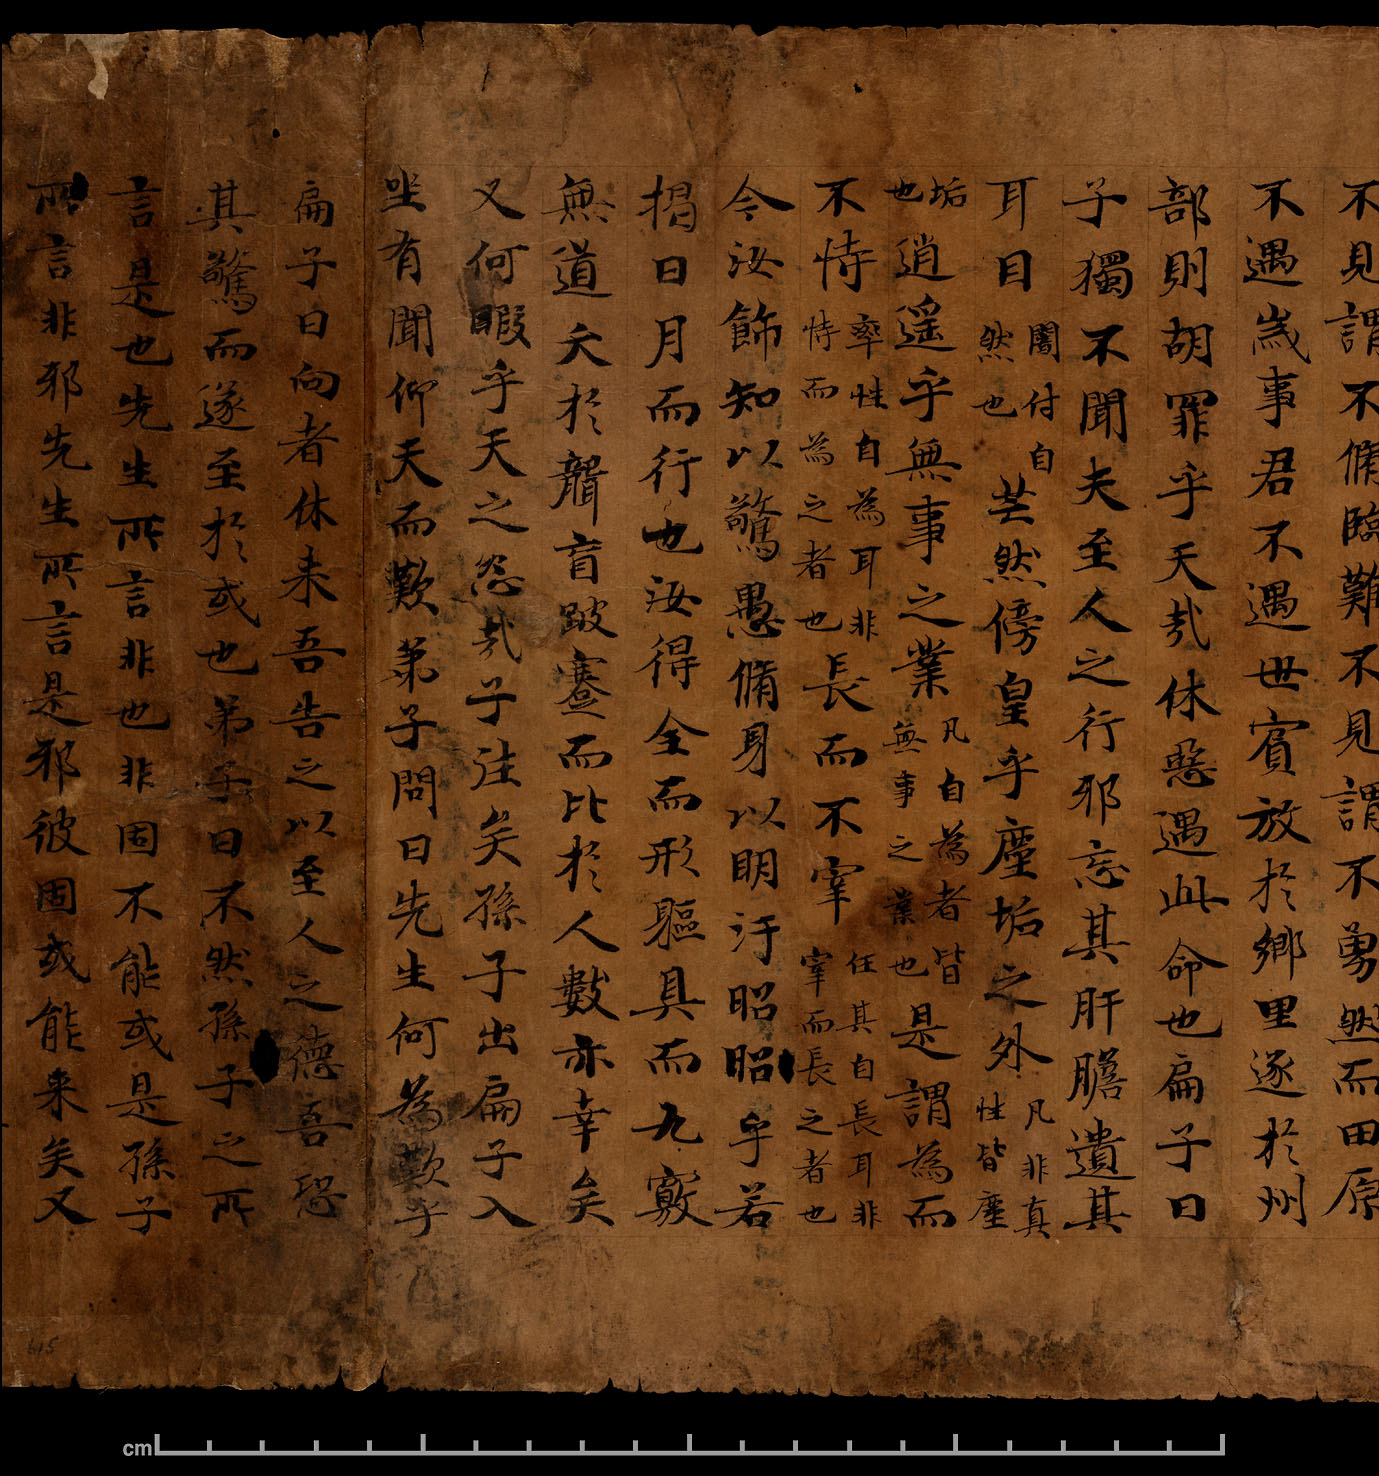 不見謂不脩臨難不見謂不勇然而田原
不遇歲事君不遇世賓放於鄉里逐於州
部則胡罪乎天哉休惡遇此命也扁子曰
子獨不聞夫至人之行邪忘其肝膽遺其
耳目闇付自然也芒然傍皇乎塵垢之外凡非真性皆塵
垢也逍遥乎無事之業凡自為者皆無事之業也是謂為而
不恃率性自為耳非恃而為之者也長而不宰任其自長耳非宰而長之者也
今汝飾知以驚愚脩身以明汙昭昭乎若
揭日月而行也汝得全而形軀具而九竅
無道夭於聾盲跛蹇而比於人數亦幸矣
又何暇乎天之怨哉子往矣孫子出扁子入
坐有聞仰天而歎弟子問曰先生何為歎乎
扁子曰向者休来吾告之以至人之德吾恐
其驚而遂至於或也弟子曰不然孫子之所
言是也先生所言非也非固不能或是孫子
所言非邪先生所言是邪彼固或能来矣又
615
cm